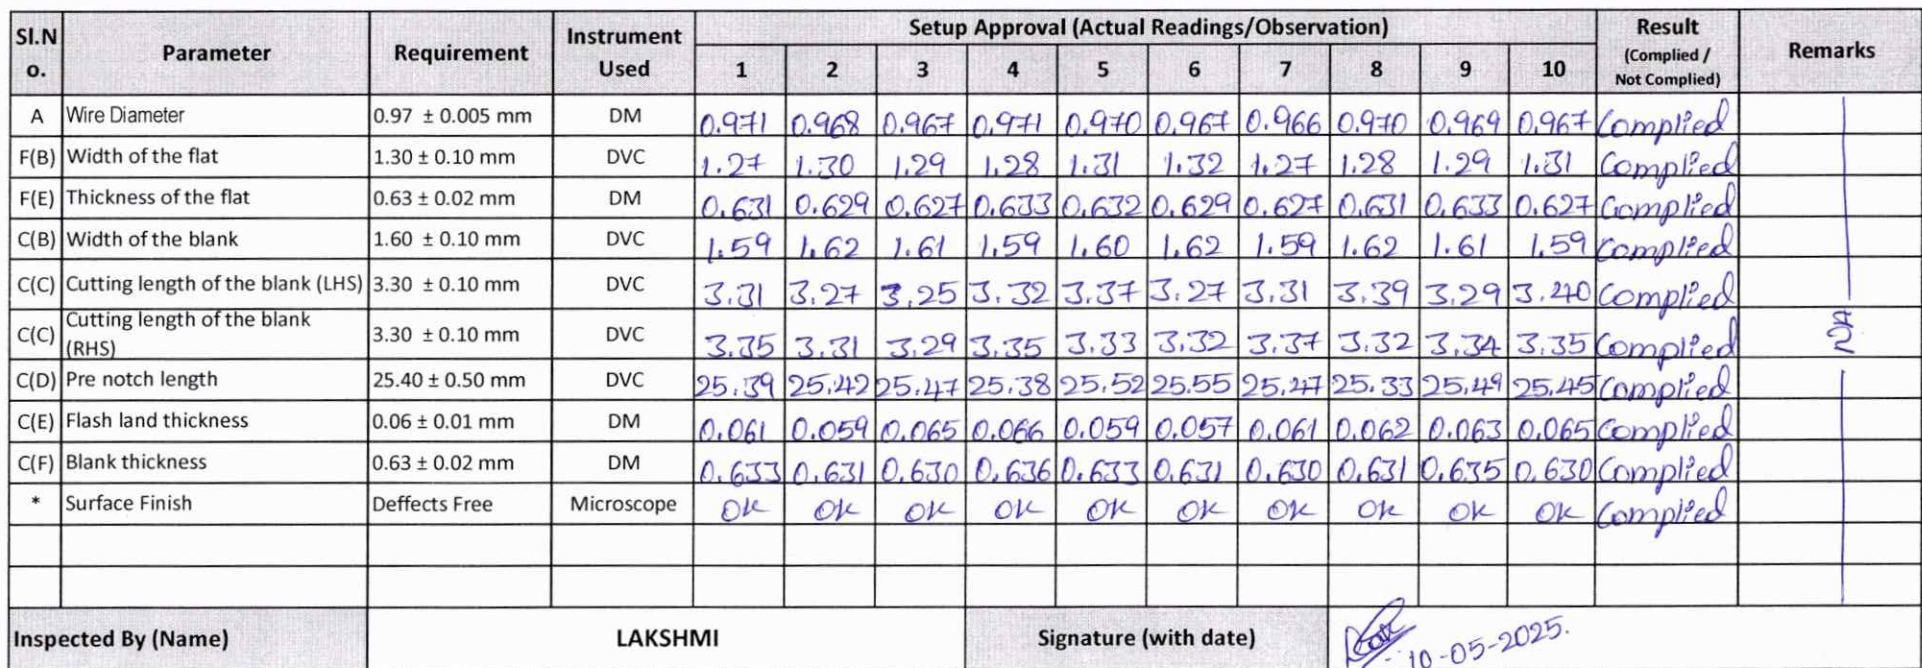 Sl.N o. Parameter Requirement Instrument Used Setup Approval (Actual Readings/Observation) Result (Complied / Not Complied) Remarks
1 2 3 4 5 6 7 8 9 10
A Wire Diameter 0.97 ± 0.005 mm DM 0.971 0.968 0.967 0.971 0.970 0.967 0.966 0.970 0.969 0.967 Complied
F(B) Width of the flat 1.30 ± 0.10 mm DVC 1.27 1.30 1.29 1.28 1.31 1.32 1.27 1.28 1.29 1.31 Complied
F(E) Thickness of the flat 0.63 ± 0.02 mm DM 0.631 0.629 0.627 0.633 0.632 0.629 0.627 0.631 0.633 0.627 Complied
C(B) Width of the blank 1.60 ± 0.10 mm DVC 1.59 1.62 1.61 1.59 1.60 1.62 1.59 1.62 1.61 1.59 Complied
C(C) Cutting length of the blank (LHS) 3.30 ± 0.10 mm DVC 3.31 3.27 3.25 3.32 3.37 3.27 3.31 3.39 3.29 3.240 Complied
C(C) Cutting length of the blank (RHS) 3.30 ± 0.10 mm DVC 3.35 3.31 3.29 3.35 3.33 3.32 3.37 3.32 3.34 3.35 Complied
C(D) Pre notch length 25.40 ± 0.50 mm DVC 25.39 25.42 25.47 25.38 25.52 25.55 25.47 25.33 25.49 25.45 Complied
C(E) Flash land thickness 0.06 ± 0.01 mm DM 0.061 0.059 0.065 0.066 0.059 0.057 0.061 0.062 0.063 0.065 Complied
C(F) Blank thickness 0.63 ± 0.02 mm DM 0.633 0.631 0.630 0.636 0.633 0.631 0.630 0.631 0.635 0.630 Complied
* Surface Finish Deffects Free Microscope OK OK OK OK OK OK OK OK OK OK Complied
Inspected By (Name) LAKSHMI Signature (with date) 10-05-2025.